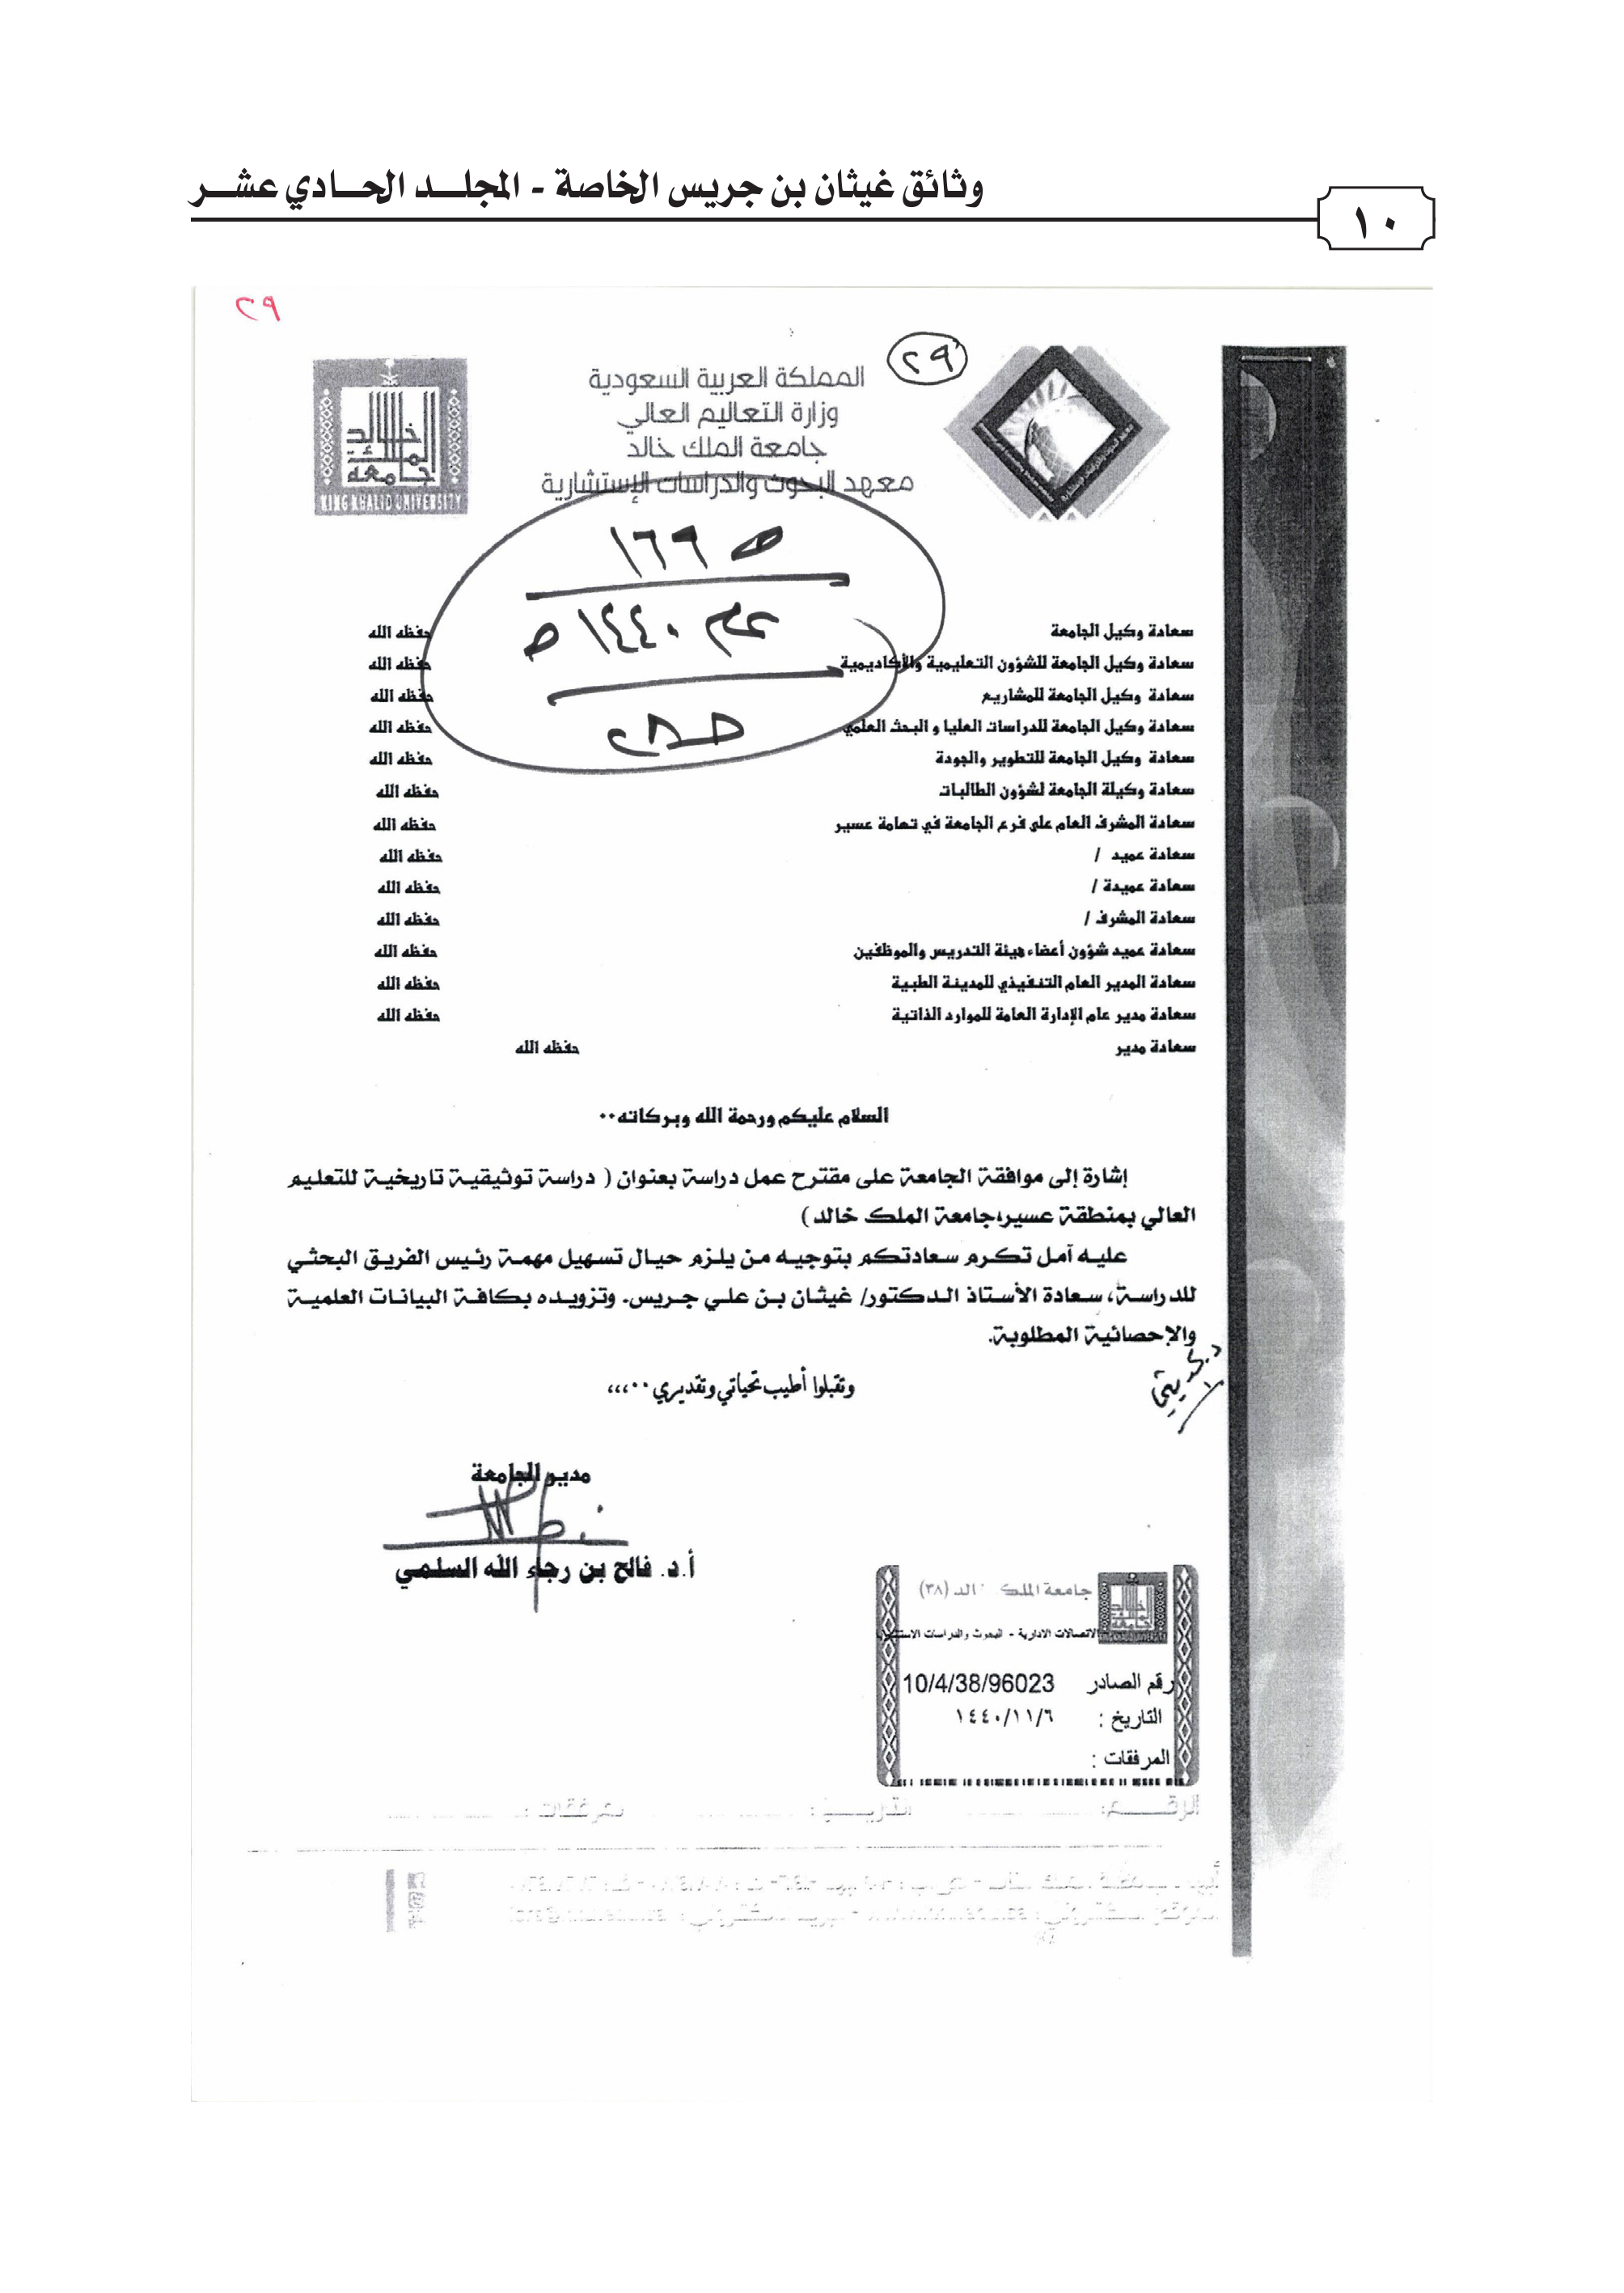 وثائق غيثان بن جريس الخاصة - المجلد الحادي عشر
١٠
٢٩
٢٩
المملكة العربية السعودية
وزارة التعاليم العالي
جامعة الملك خالد
معهد البحوث والدراسات الإستشارية
جامعة الملك خالد
KING KHALID UNIVERSITY
ص ١٦٩
عام ١٤٤٠ هـ
سعادة وكيل الجامعة حفظه الله
سعادة وكيل الجامعة للشؤون التعليمية والأكاديمية حفظه الله
سعادة وكيل الجامعة للمشاريع حفظه الله
سعادة وكيل الجامعة للدراسات العليا و البحث العلمي حفظه الله
سعادة وكيل الجامعة للتطوير والجودة حفظه الله
سعادة وكيلة الجامعة لشؤون الطالبات حفظه الله
سعادة المشرف العام على فرع الجامعة في تهامة عسير حفظه الله
سعادة عميد / حفظه الله
سعادة عميدة / حفظه الله
سعادة المشرف / حفظه الله
سعادة عميد شؤون أعضاء هيئة التدريس والموظفين حفظه الله
سعادة المدير العام التنفيذي للمدينة الطبية حفظه الله
سعادة مدير عام الإدارة العامة للموارد الذاتية حفظه الله
سعادة مدير حفظه الله
السلام عليكم ورحمة الله وبركاته..
إشارة إلى موافقة الجامعة على مقترح عمل دراسة بعنوان ( دراسة توثيقية تاريخية للتعليم
العالي بمنطقة عسير،جامعة الملك خالد)
عليه آمل تكرم سعادتكم بتوجيه من يلزم حيال تسهيل مهمة رئيس الفريق البحثي
للدراسة، سعادة الأستاذ الدكتور/ غيثان بن علي جريس. وتزويده بكافة البيانات العلمية
والإحصائية المطلوبة.
وتقبلوا أطيب تحياتي وتقديري ..،،،
مدير الجامعة
أ.د. فالح بن رجاء الله السلمي
جامعة الملك خالد (٣٨)
الاتصالات الادارية - البحوث والدراسات الاستشارية
رقم الصادر 10/4/38/96023
التاريخ : ١٤٤٠/١١/٦
المرفقات :
الرقـــم: التاريـــخ : المرفقات :